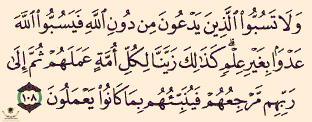 وَلَا تَسُبُّوا۟ ٱلَّذِينَ يَدْعُونَ مِن دُونِ ٱللَّهِ فَيَسُبُّوا۟ ٱللَّهَ
عَدْوًۢا بِغَيْرِ عِلْمٍۗ كَذَٰلِكَ زَيَّنَّا لِكُلِّ أُمَّةٍ عَمَلَهُمْ ثُمَّ إِلَىٰ
رَبِّهِم مَّرْجِعُهُمْ فَيُنَبِّئُهُم بِمَا كَانُوا۟ يَعْمَلُونَ ١٠٨